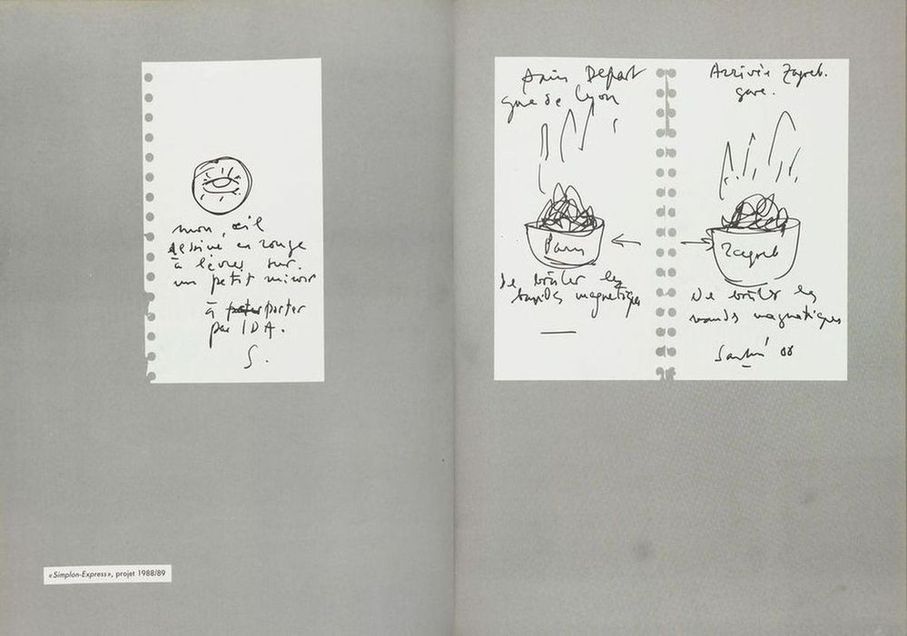 mon œil
dessiné en rouge
à lèvres sur
un petit miroir
à porter porter
par IDA.
S.
«Simplon-Express», projet 1988/89
Paris Départ
gare de Lyon
Paris
de brûler les
bandes magnétiques
Arrivée Zagreb.
gare.
Zagreb
De brûler les
bandes magnétiques
88